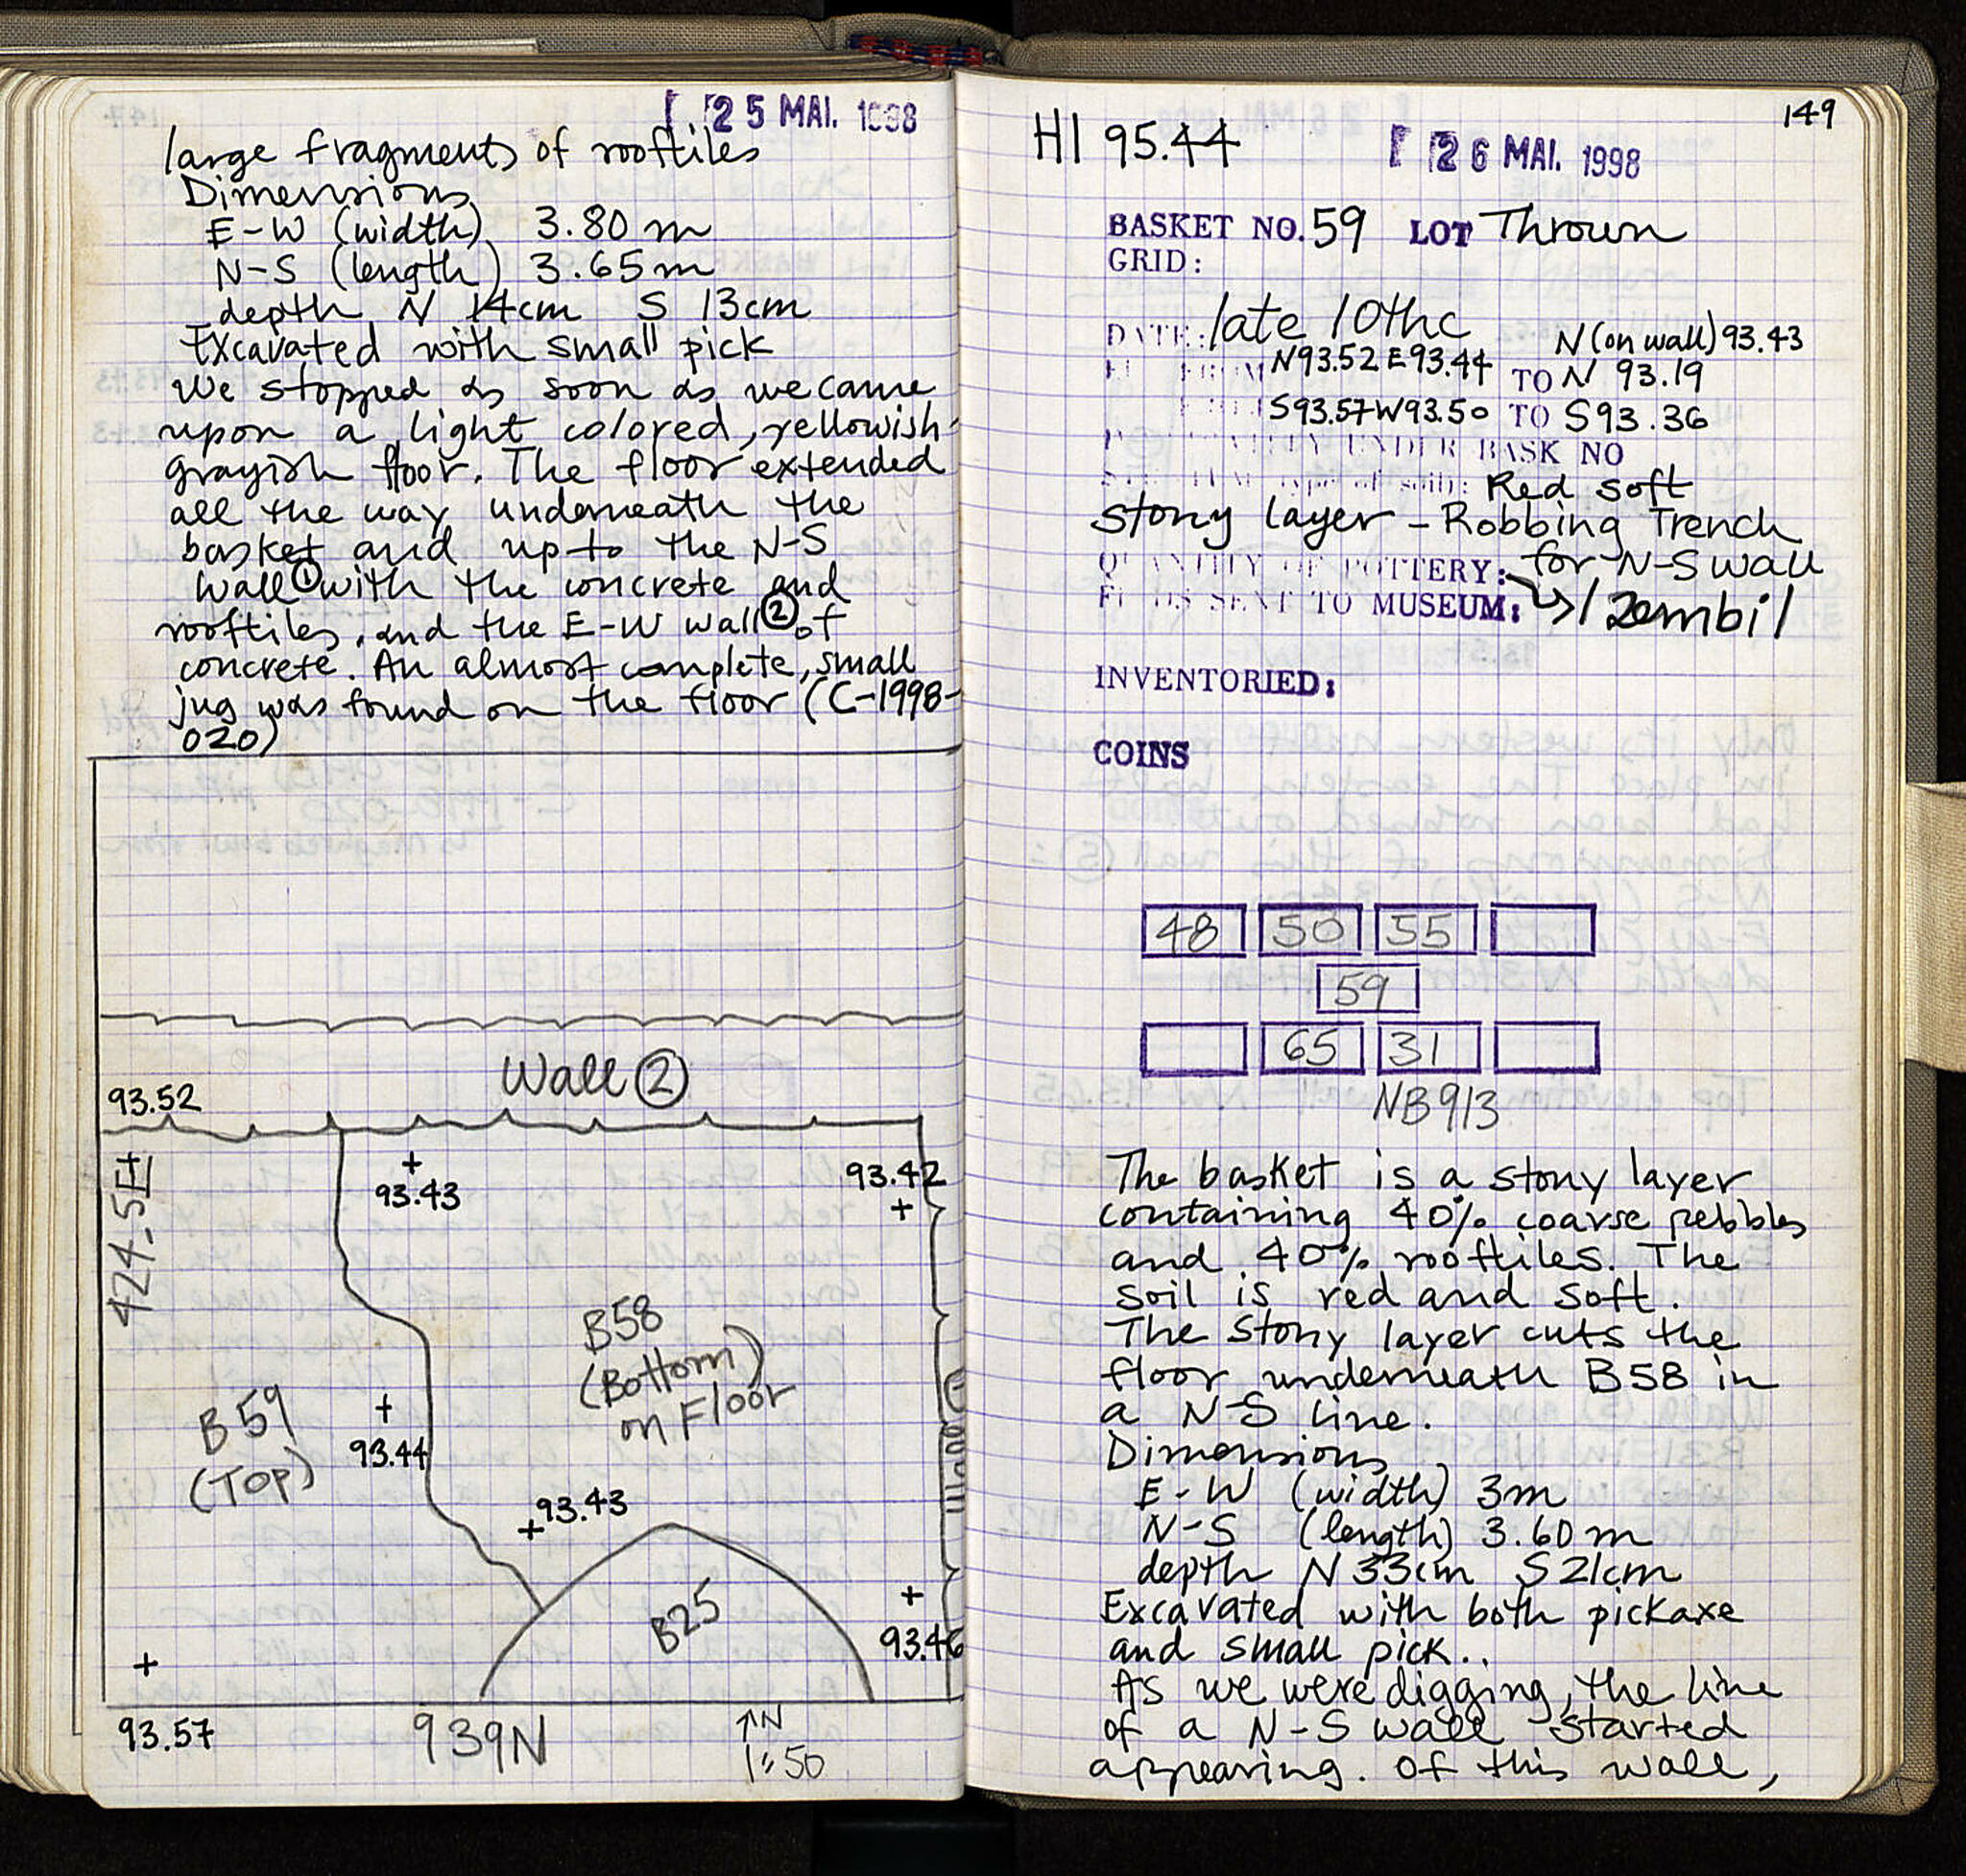 25 MAI. 1998
large fragments of rooftiles
Dimensions
E-W (width) 3.80 m
N-S (length) 3.65 m
depth N 14cm S 13cm
Excavated with small pick
We stopped as soon as we came
upon a light colored, yellowish-
grayish floor. The floor extended
all the way underneath the
basket and up to the N-S
wall ① with the concrete and
rooftiles, and the E-W wall ② of
concrete. An almost complete, small
jug was found on the floor (C-1998-
020)
Wall ②
93.52
424.5E
93.43
93.42
B58
(Bottom)
on Floor
B59
(TOP)
93.44
93.43
B25
93.46
93.57
939N
↑N
1:50
149
H1 95.44
26 MAI. 1998
BASKET NO. 59 LOT Thrown
GRID:
DATE: late 10thc
N (on wall) 93.43
FROM N93.52 E93.44 TO N 93.19
S93.57 W93.50 TO S93.36
UNDER BASK NO
type of soil: Red soft
stony layer - Robbing Trench
for N-S wall
QUANTITY OF POTTERY: 1 zembil
FINDS SENT TO MUSEUM:
INVENTORIED:
COINS
48 50 55
59
65 31
NB913
The basket is a stony layer
containing 40% coarse pebbles
and 40% rooftiles. The
soil is red and soft.
The stony layer cuts the
floor underneath B58 in
a N-S line.
Dimensions
E-W (width) 3m
N-S (length) 3.60 m
depth N 33cm S 21cm
Excavated with both pickaxe
and small pick..
As we were digging, the line
of a N-S wall started
appearing. Of this wall,